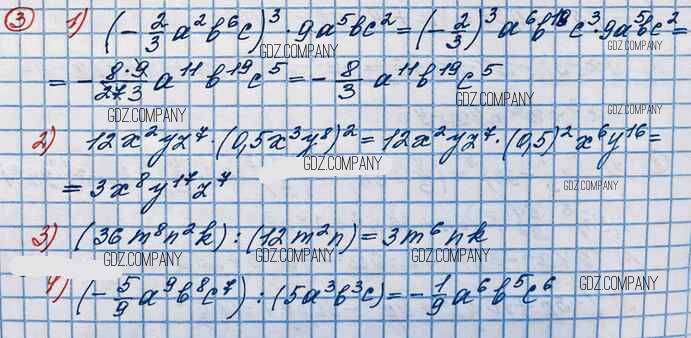 ③ 1) (-2/3 a²b⁶c)³ · 9a⁵bc² = (-2/3)³ a⁶b¹⁸c³ · 9a⁵bc² =
GDZ.COMPANY GDZ.COMPANY
= - 8·9/27 3 a¹¹b¹⁹c⁵ = - 8/3 a¹¹b¹⁹c⁵
GDZ.COMPANY GDZ.COMPANY GDZ.COMPANY
2) 12x²yz⁷ · (0,5x³y⁸)² = 12x²yz⁷ · (0,5)²x⁶y¹⁶ =
GDZ.COMPANY
= 3x⁸y¹⁷z⁷
GDZ.COMPANY
3) (36m⁸n²k) : (12m²n) = 3m⁶nk
GDZ.COMPANY GDZ.COMPANY GDZ.COMPANY
4) (-5/9 a⁹b⁸c⁷) : (5a³b³c) = - 1/9 a⁶b⁵c⁶
GDZ.COMPANY